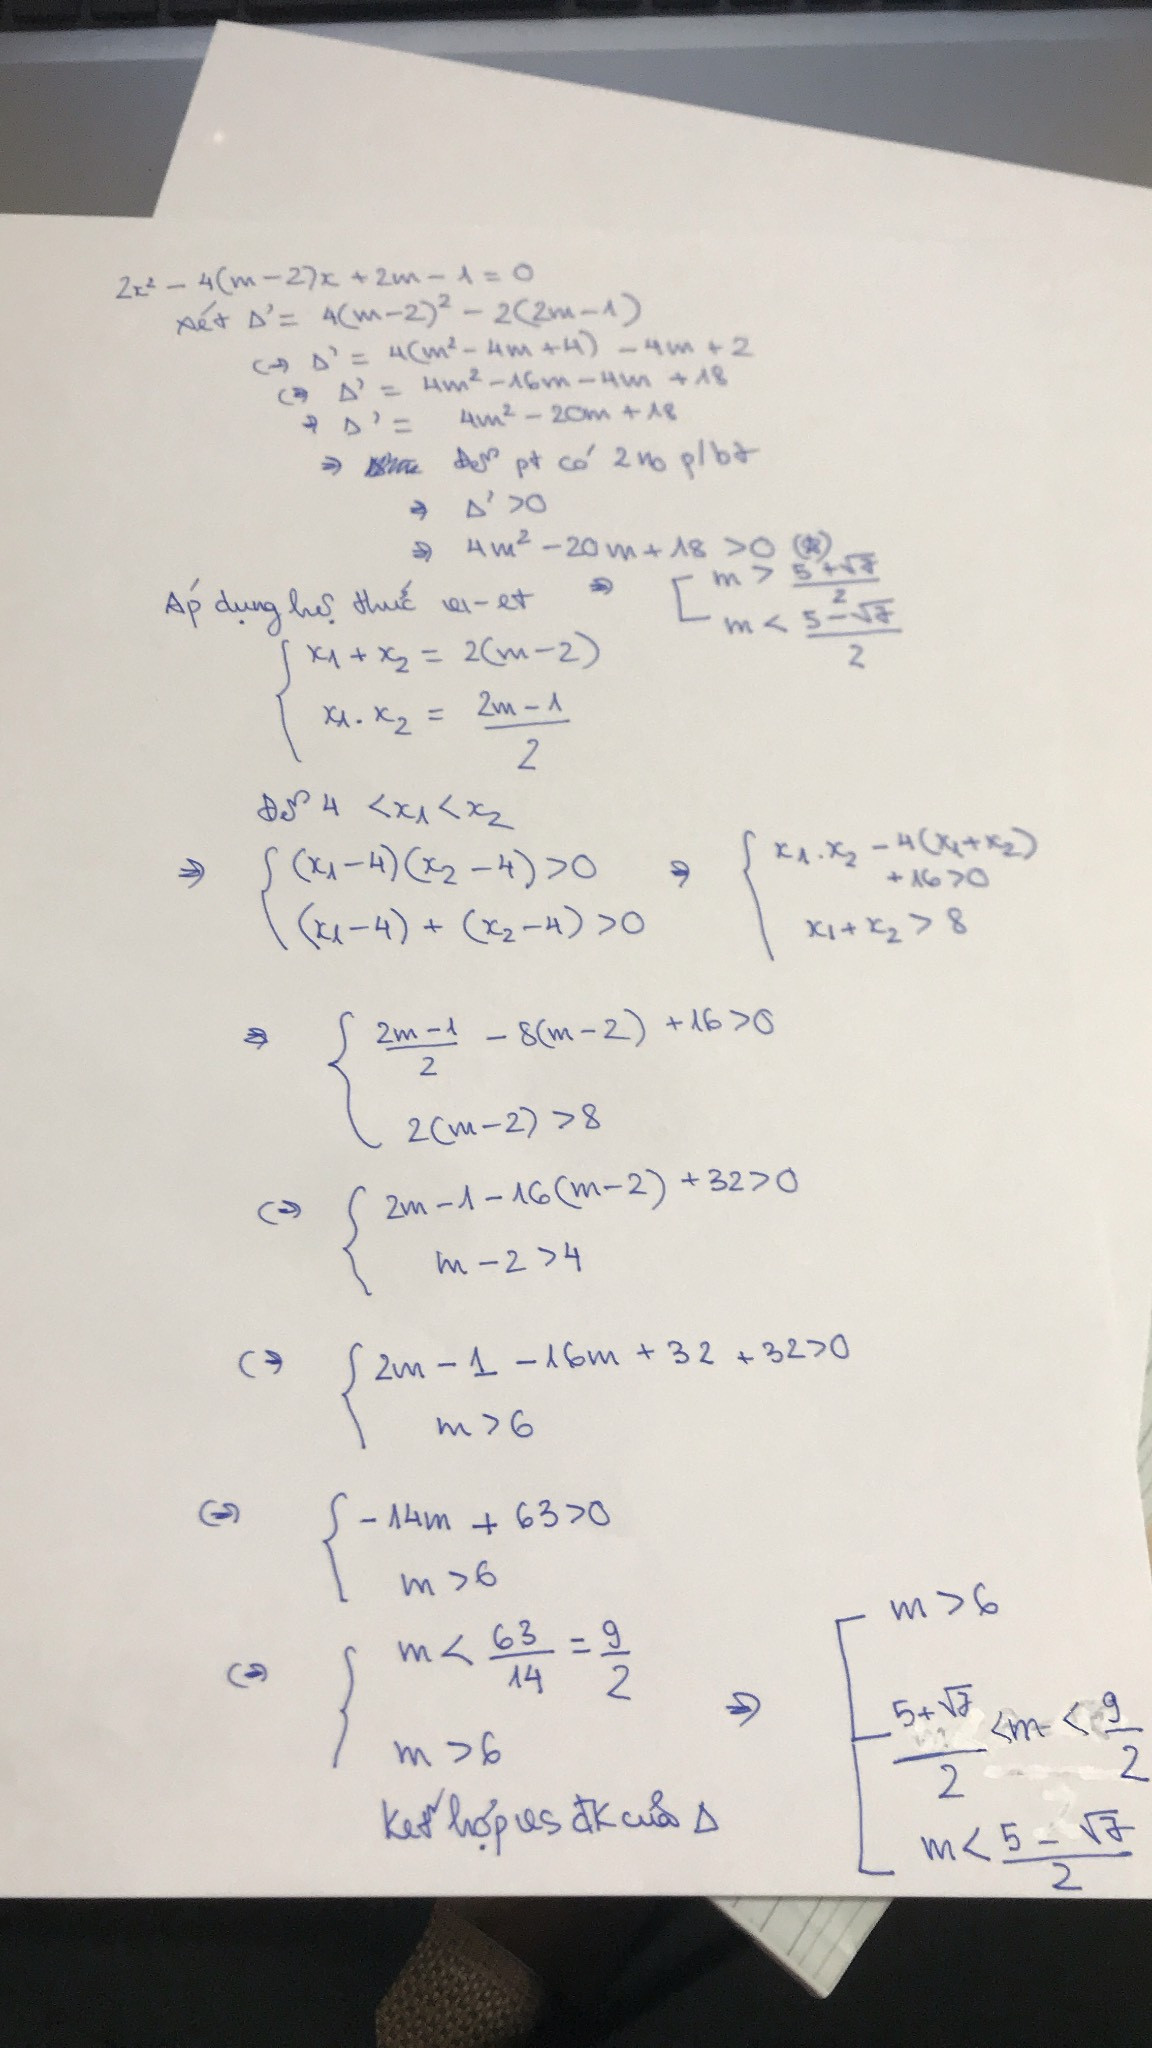 2x² - 4(m-2)x + 2m - 1 = 0
xét Δ' = 4(m-2)² - 2(2m-1)
(=> Δ' = 4(m² - 4m + 4) - 4m + 2
(=> Δ' = 4m² - 16m - 4m + 18
=> Δ' = 4m² - 20m + 18
=> Để pt có 2 no p/bt
=> Δ' > 0
=> 4m² - 20m + 18 > 0 (*)
=> [ m > (5+√7)/2
m < (5-√7)/2
Áp dụng hệ thức vi-et
{ x1 + x2 = 2(m-2)
x1 . x2 = (2m-1)/2
Để 4 < x1 < x2
=> { (x1-4)(x2-4) > 0 => { x1.x2 - 4(x1+x2) + 16 > 0
(x1-4) + (x2-4) > 0 x1 + x2 > 8
=> { (2m-1)/2 - 8(m-2) + 16 > 0
2(m-2) > 8
(=> { 2m - 1 - 16(m-2) + 32 > 0
m - 2 > 4
(=> { 2m - 1 - 16m + 32 + 32 > 0
m > 6
(=> { -14m + 63 > 0
m > 6
(=> { m < 63/14 = 9/2
m > 6
Kết hợp vs đk của Δ
=> [ m > 6
(5+√7)/2 < m < 9/2
m < (5-√7)/2